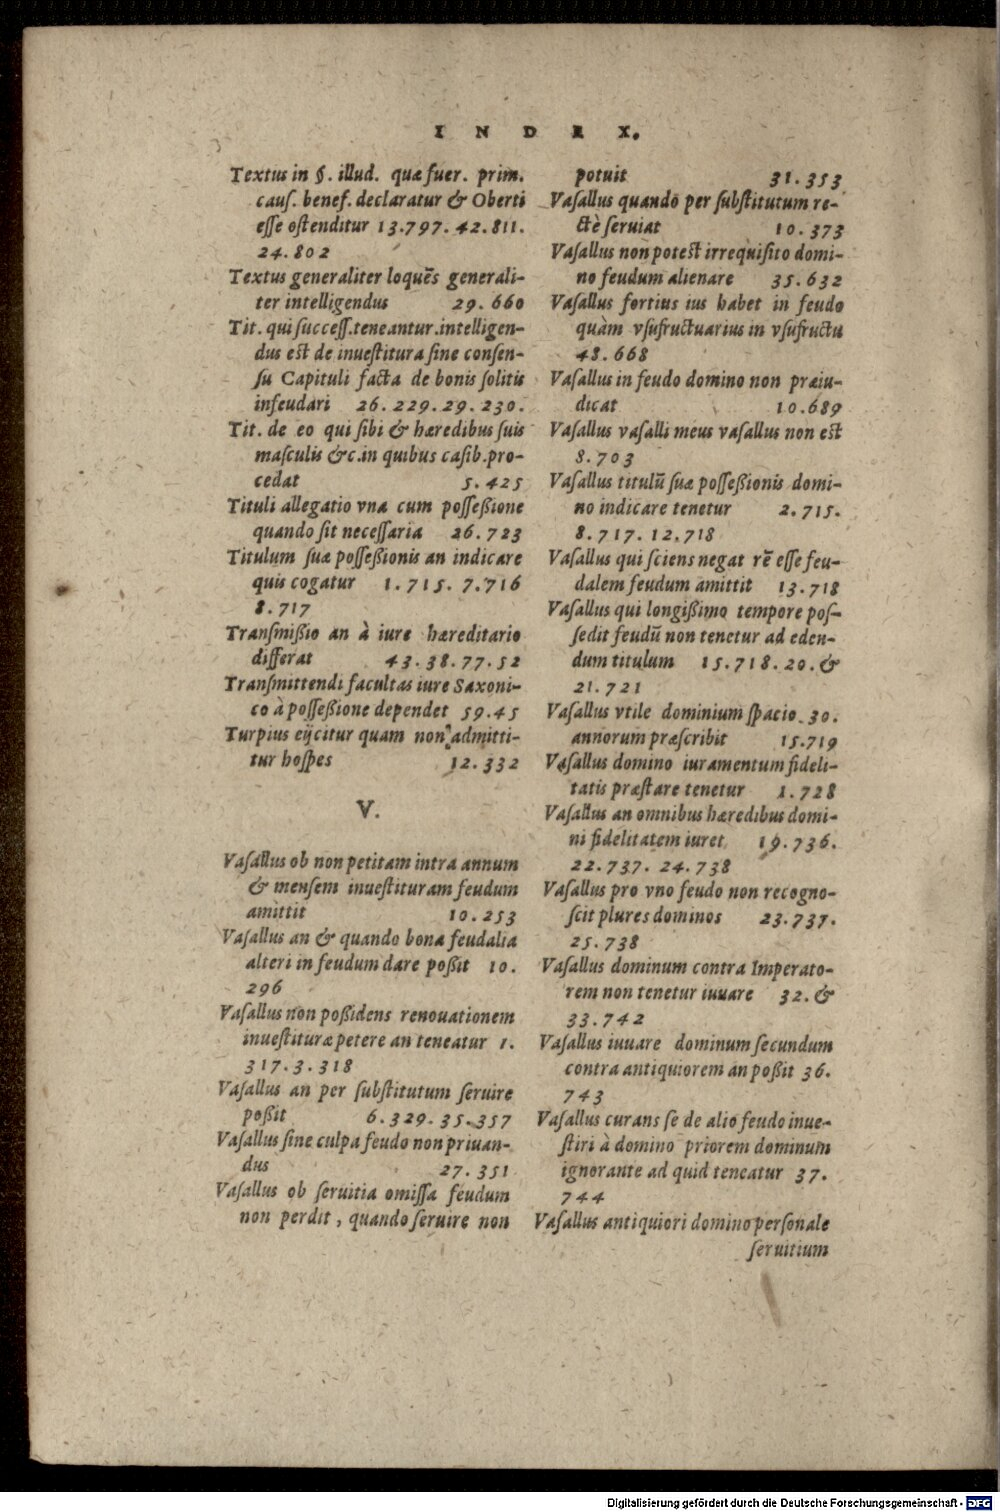 INDEX.
Textus in §. illud. quæ fuer. prim.
cauſ. benef. declaratur & Oberti
eſſe oſtenditur 13.797.42.811.
24.802
Textus generaliter loquẽs generali-
ter intelligendus 29.660
Tit. qui ſucceſſ.teneantur.intelligen-
dus est de inueſtitura ſine conſen-
ſu Capituli facta de bonis ſolitis
infeudari 26.229.29.230.
Tit. de eo qui ſibi & hæredibus ſuis
maſculis &c.in quibus caſib.pro-
cedat 5.425
Tituli allegatio vna cum poſſeßione
quando ſit neceſſaria 26.723
Titulum ſuæ poſſeßionis an indicare
quis cogatur 1.715. 7.716
8.717
Tranſmißio an à iure hæreditario
differat 43.38.77.52
Tranſmittendi facultas iure Saxoni-
co à poſſeßione dependet 59.45
Turpius eijcitur quam non admitti-
tur hoſpes 12.332
V.
Vaſallus ob non petitam intra annum
& menſem inueſtituram feudum
amittit 10.253
Vaſallus an & quando bona feudalia
alteri in feudum dare poßit 10.
296
Vaſallus non poßidens renouationem
inueſtituræ petere an teneatur 1.
317.3.318
Vaſallus an per ſubſtitutum ſeruire
poßit 6.329.35.357
Vaſallus ſine culpa feudo non priuan-
dus 27.351
Vaſallus ob ſeruitia omiſſa feudum
non perdit, quando ſeruire non
potuit 31.353
Vaſallus quando per ſubſtitutum re-
ctè ſeruiat 10.373
Vaſallus non potest irrequiſito domi-
no feudum alienare 35.632
Vaſallus fortius ius habet in feudo
quàm vſufructuarius in vſufructu
48.668
Vaſallus in feudo domino non præiu-
dicat 10.689
Vaſallus vaſalli meus vaſallus non est
8.703
Vaſallus titulũ ſuæ poſſeßionis domi-
no indicare tenetur 2.715.
8.717.12.718
Vaſallus qui ſciens negat rẽ eſſe feu-
dalem feudum amittit 13.718
Vaſallus qui longißimo tempore poſ-
ſedit feudũ non tenetur ad eden-
dum titulum 15.718.20.&
21.721
Vaſallus vtile dominium ſpacio 30.
annorum præſcribit 15.719
Vaſallus domino iuramentum fideli-
tatis præſtare tenetur 1.728
Vaſallus an omnibus hæredibus domi-
ni fidelitatem iuret 19.736.
22.737. 24.738
Vaſallus pro vno feudo non recogno-
ſcit plures dominos 23.737.
25.738
Vaſallus dominum contra Imperato-
rem non tenetur iuuare 32.&
33.742
Vaſallus iuuare dominum ſecundum
contra antiquiorem an poßit 36.
743
Vaſallus curans ſe de alio feudo inue-
ſtiri à domino priorem dominum
ignorante ad quid teneatur 37.
744
Vaſallus antiquiori domino perſonale
ſeruitium
Digitalisierung gefördert durch die Deutsche Forschungsgemeinschaft - DFG